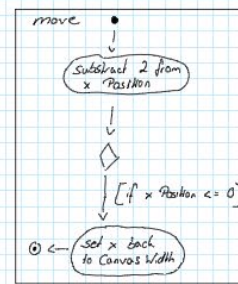 move
substract 2 from
x Position
[if x Position <= 0
set x back
to Canvas Width